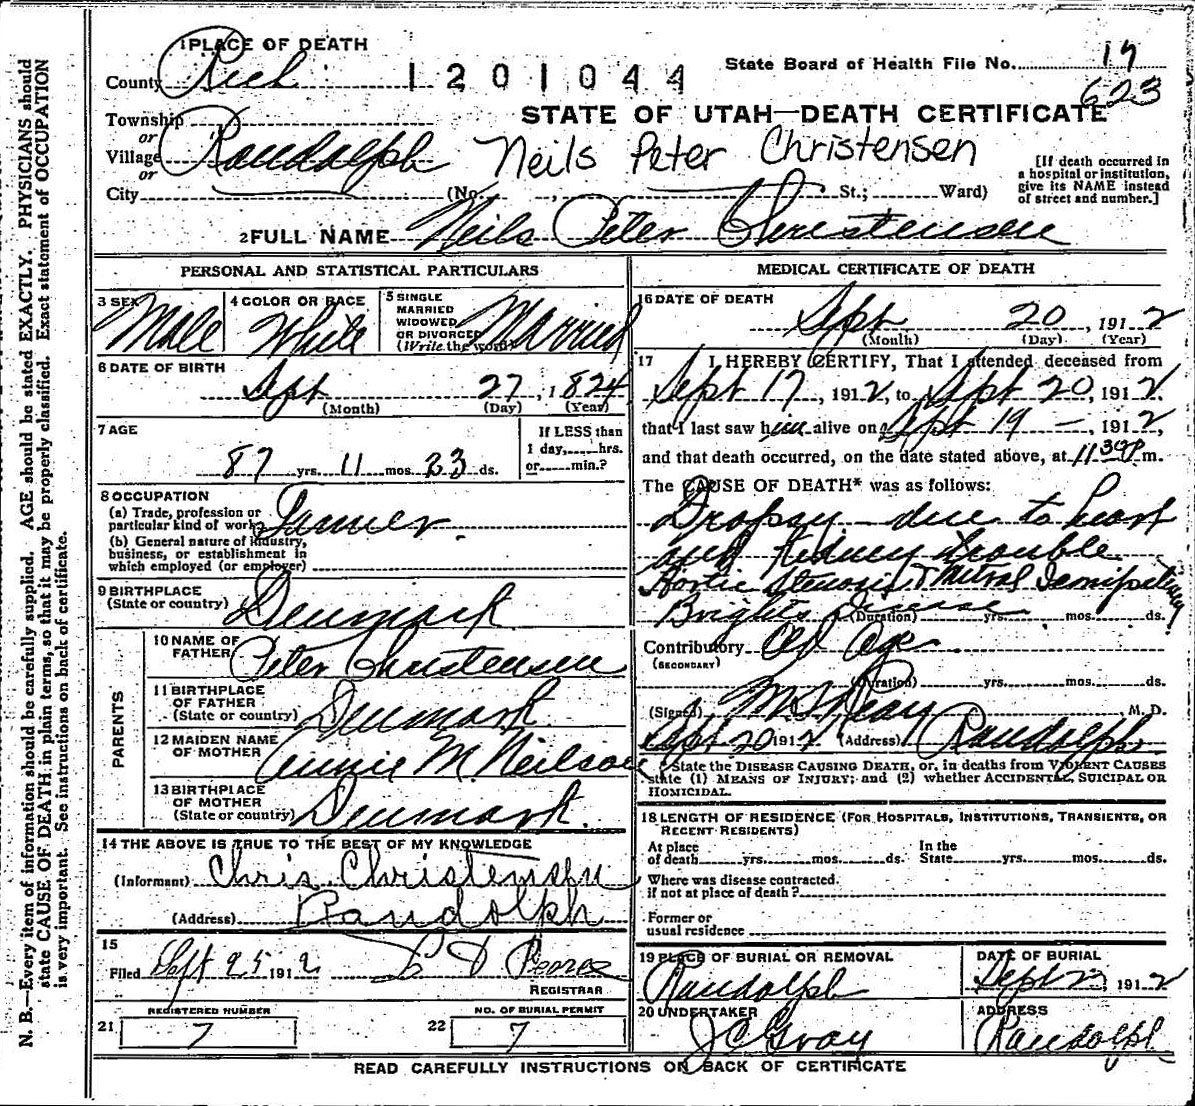 1 PLACE OF DEATH
County Rich
1201044
State Board of Health File No. 17
623
Township
or
Village Randolph
or
City (No. , St.; Ward)
STATE OF UTAH—DEATH CERTIFICATE
Neils Peter Christensen
[If death occurred in
a hospital or institution,
give its NAME instead
of street and number.]
2 FULL NAME Neils Peter Christensen
PERSONAL AND STATISTICAL PARTICULARS
3 SEX Male
4 COLOR OR RACE White
5 SINGLE
MARRIED
WIDOWED
OR DIVORCED
(Write the word) Married
6 DATE OF BIRTH
Sept 27, 1824
(Month) (Day) (Year)
7 AGE
87 yrs. 11 mos. 23 ds.
If LESS than
1 day, hrs.
or min.?
8 OCCUPATION
(a) Trade, profession or
particular kind of work
(b) General nature of industry,
business, or establishment in
which employed (or employer)
9 BIRTHPLACE
(State or country) Denmark
PARENTS
10 NAME OF
FATHER Peter Christensen
11 BIRTHPLACE
OF FATHER
(State or country) Denmark
12 MAIDEN NAME
OF MOTHER Annie M. Neilson
13 BIRTHPLACE
OF MOTHER
(State or country) Denmark.
14 THE ABOVE IS TRUE TO THE BEST OF MY KNOWLEDGE
(Informant) Chris Christensen
(Address) Randolph
15
Filed Sept 25 1912
Pearce
REGISTRAR
REGISTERED NUMBER
21 7
NO. OF BURIAL PERMIT
22 7
MEDICAL CERTIFICATE OF DEATH
16 DATE OF DEATH
Sept 20, 1912
(Month) (Day) (Year)
17 I HEREBY CERTIFY, That I attended deceased from
Sept 17, 1912, to Sept 20, 1912.
that I last saw him alive on Sept 19 —, 1912,
and that death occurred, on the date stated above, at 11 30 P m.
The CAUSE OF DEATH* was as follows:
Dropsy — due to heart
and kidney trouble
Aortic Stenosis & Mitral
Brights Disease (Duration) yrs. mos. ds.
Contributory Old Age
(SECONDARY)
(Duration) yrs. mos. ds.
(Signed) M. D.
Sept 20 1912 (Address) Randolph
* State the DISEASE CAUSING DEATH, or, in deaths from VIOLENT CAUSES
state (1) MEANS OF INJURY; and (2) whether ACCIDENTAL, SUICIDAL OR
HOMICIDAL.
18 LENGTH OF RESIDENCE (FOR HOSPITALS, INSTITUTIONS, TRANSIENTS, OR
RECENT RESIDENTS)
At place
of death yrs. mos. ds.
In the
State yrs. mos. ds.
Where was disease contracted.
if not at place of death?
Former or
usual residence
19 PLACE OF BURIAL OR REMOVAL
Randolph
DATE OF BURIAL
Sept 23, 1912
20 UNDERTAKER
J C Gray
ADDRESS
Randolph
READ CAREFULLY INSTRUCTIONS ON BACK OF CERTIFICATE
N. B.—Every item of information should be carefully supplied. AGE should be stated EXACTLY. PHYSICIANS should
state CAUSE OF DEATH in plain terms, so that it may be properly classified. Exact statement of OCCUPATION
is very important. See instructions on back of certificate.